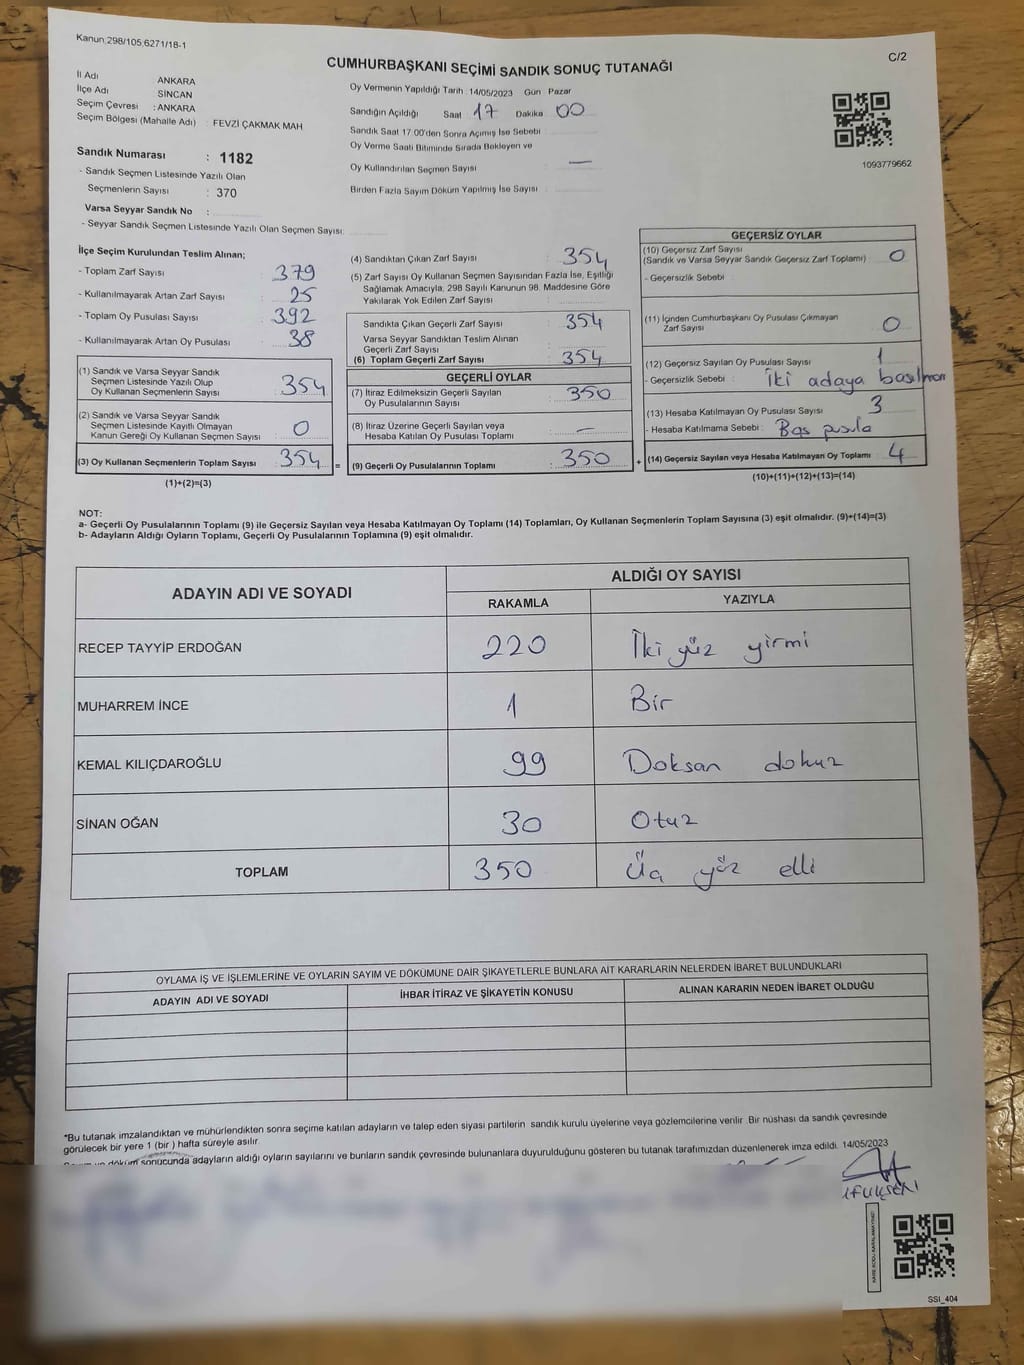 Kanun:298/105;6271/18-1
C/2
CUMHURBAŞKANI SEÇİMİ SANDIK SONUÇ TUTANAĞI
İl Adı ANKARA
İlçe Adı SİNCAN
Seçim Çevresi : ANKARA
Seçim Bölgesi (Mahalle Adı) : FEVZİ ÇAKMAK MAH
Sandık Numarası : 1182
- Sandık Seçmen Listesinde Yazılı Olan
Seçmenlerin Sayısı : 370
Varsa Seyyar Sandık No :
- Seyyar Sandık Seçmen Listesinde Yazılı Olan Seçmen Sayısı:
Oy Vermenin Yapıldığı Tarih : 14/05/2023 Gün Pazar
Sandığın Açıldığı Saat 17 Dakika 00
Sandık Saat 17.00'den Sonra Açımış İse Sebebi :
Oy Verme Saati Bitiminde Sırada Bekleyen ve
Oy Kullandırılan Seçmen Sayısı : —
Birden Fazla Sayım Döküm Yapılmış İse Sayısı :
1093779662
İlçe Seçim Kurulundan Teslim Alınan;
- Toplam Zarf Sayısı : 379
- Kullanılmayarak Artan Zarf Sayısı : 25
- Toplam Oy Pusulası Sayısı : 392
- Kullanılmayarak Artan Oy Pusulası : 38
(1) Sandık ve Varsa Seyyar Sandık
Seçmen Listesinde Yazılı Olup
Oy Kullanan Seçmenlerin Sayısı : 354
(2) Sandık ve Varsa Seyyar Sandık
Seçmen Listesinde Kayıtlı Olmayan
Kanun Gereği Oy Kullanan Seçmen Sayısı : 0
(3) Oy Kullanan Seçmenlerin Toplam Sayısı : 354 =
(1)+(2)=(3)
(4) Sandıktan Çıkan Zarf Sayısı : 354
(5) Zarf Sayısı Oy Kullanan Seçmen Sayısından Fazla İse, Eşitliği
Sağlamak Amacıyla, 298 Sayılı Kanunun 98. Maddesine Göre
Yakılarak Yok Edilen Zarf Sayısı :
Sandıkta Çıkan Geçerli Zarf Sayısı : 354
Varsa Seyyar Sandıktan Teslim Alınan
Geçerli Zarf Sayısı :
(6) Toplam Geçerli Zarf Sayısı : 354
GEÇERLİ OYLAR
(7) İtiraz Edilmeksizin Geçerli Sayılan
Oy Pusulalarının Sayısı : 350
(8) İtiraz Üzerine Geçerli Sayılan veya
Hesaba Katılan Oy Pusulası Toplamı : —
(9) Geçerli Oy Pusulalarının Toplamı : 350 +
GEÇERSİZ OYLAR
(10) Geçersiz Zarf Sayısı
(Sandık ve Varsa Seyyar Sandık Geçersiz Zarf Toplamı) : 0
- Geçersizlik Sebebi :
(11) İçinden Cumhurbaşkanı Oy Pusulası Çıkmayan
Zarf Sayısı : 0
(12) Geçersiz Sayılan Oy Pusulası Sayısı : 1
- Geçersizlik Sebebi : İki adaya basılması
(13) Hesaba Katılmayan Oy Pusulası Sayısı : 3
- Hesaba Katılmama Sebebi : Boş pusula
(14) Geçersiz Sayılan veya Hesaba Katılmayan Oy Toplamı : 4
(10)+(11)+(12)+(13)=(14)
NOT:
a- Geçerli Oy Pusulalarının Toplamı (9) ile Geçersiz Sayılan veya Hesaba Katılmayan Oy Toplamı (14) Toplamları, Oy Kullanan Seçmenlerin Toplam Sayısına (3) eşit olmalıdır. (9)+(14)=(3)
b- Adayların Aldığı Oyların Toplamı, Geçerli Oy Pusulalarının Toplamına (9) eşit olmalıdır.
ADAYIN ADI VE SOYADI
ALDIĞI OY SAYISI
RAKAMLA YAZIYLA
RECEP TAYYİP ERDOĞAN 220 İki yüz yirmi
MUHARREM İNCE 1 Bir
KEMAL KILIÇDAROĞLU 99 Doksan dokuz
SİNAN OĞAN 30 Otuz
TOPLAM 350 Üç yüz elli
OYLAMA İŞ VE İŞLEMLERİNE VE OYLARIN SAYIM VE DÖKÜMÜNE DAİR ŞİKAYETLERLE BUNLARA AİT KARARLARIN NELERDEN İBARET BULUNDUKLARI
ADAYIN ADI VE SOYADI İHBAR İTİRAZ VE ŞİKAYETİN KONUSU ALINAN KARARIN NEDEN İBARET OLDUĞU
*Bu tutanak imzalandıktan ve mühürlendikten sonra seçime katılan adayların ve talep eden siyasi partilerin sandık kurulu üyelerine veya gözlemcilerine verilir. Bir nüshası da sandık çevresinde
görülecek bir yere 1 (bir) hafta süreyle asılır.
ve döküm sonucunda adayların aldığı oyların sayılarını ve bunların sandık çevresinde bulunanlara duyurulduğunu gösteren bu tutanak tarafımızdan düzenlenerek imza edildi. 14/05/2023
SSI_404